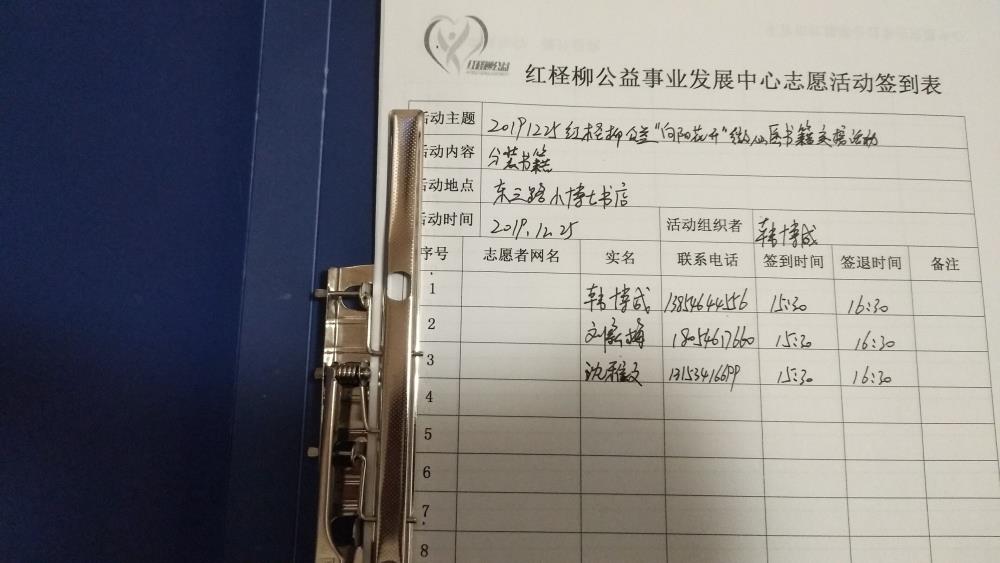 红柽柳公益
红柽柳公益事业发展中心志愿活动签到表
活动主题 20191225红柽柳公益"向阳花开" 书籍 活动
活动内容 分装书籍
活动地点 东三路小博士书店
活动时间 2019.12.25 活动组织者 韩博成
序号 志愿者网名 实名 联系电话 签到时间 签退时间 备注
1 韩博成 13854644556 15:30 16:30
2 刘 梅 18054617660 15:30 16:30
3 沈雅文 13153416699 15:30 16:30
4
5
6
7
8